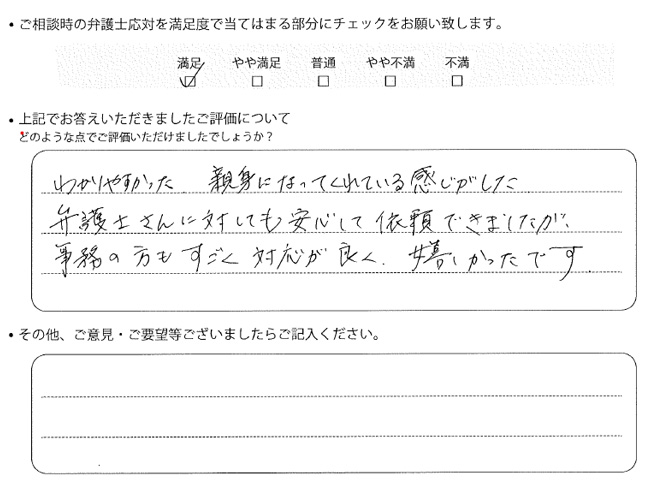 ・ご相談時の弁護士応対を満足度で当てはまる部分にチェックをお願い致します。
満足 やや満足 普通 やや不満 不満
☑ □ □ □ □
・上記でお答えいただきましたご評価について
どのような点でご評価いただけましたでしょうか？
わかりやすかった 親身になってくれている感じがした
弁護士さんに対しても安心して依頼できましたが、
事務の方もすごく対応が良く、嬉しかったです
・その他、ご意見・ご要望等ございましたらご記入ください。